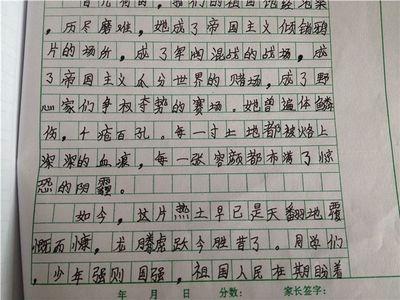 昔几何时，我们的祖国饱经沧桑
，历尽磨难，她成了帝国主义倾销鸦
片的场所，成了军阀混战的战场，成
了帝国主义瓜分世界的赌场，成了野
心家们争权夺势的赛场。她曾遍体鳞
伤，千疮百孔。每一寸土地都被烙上
深深的血痕，每一张容颜都布满了惊
恐的阴霾。
如今，这片热土早已是天翻地覆
慨而慷，龙腾虎跃今胜昔了。同学们
，少年强则国强，祖国人民在期盼着
年 月 日 分数： 家长签字：